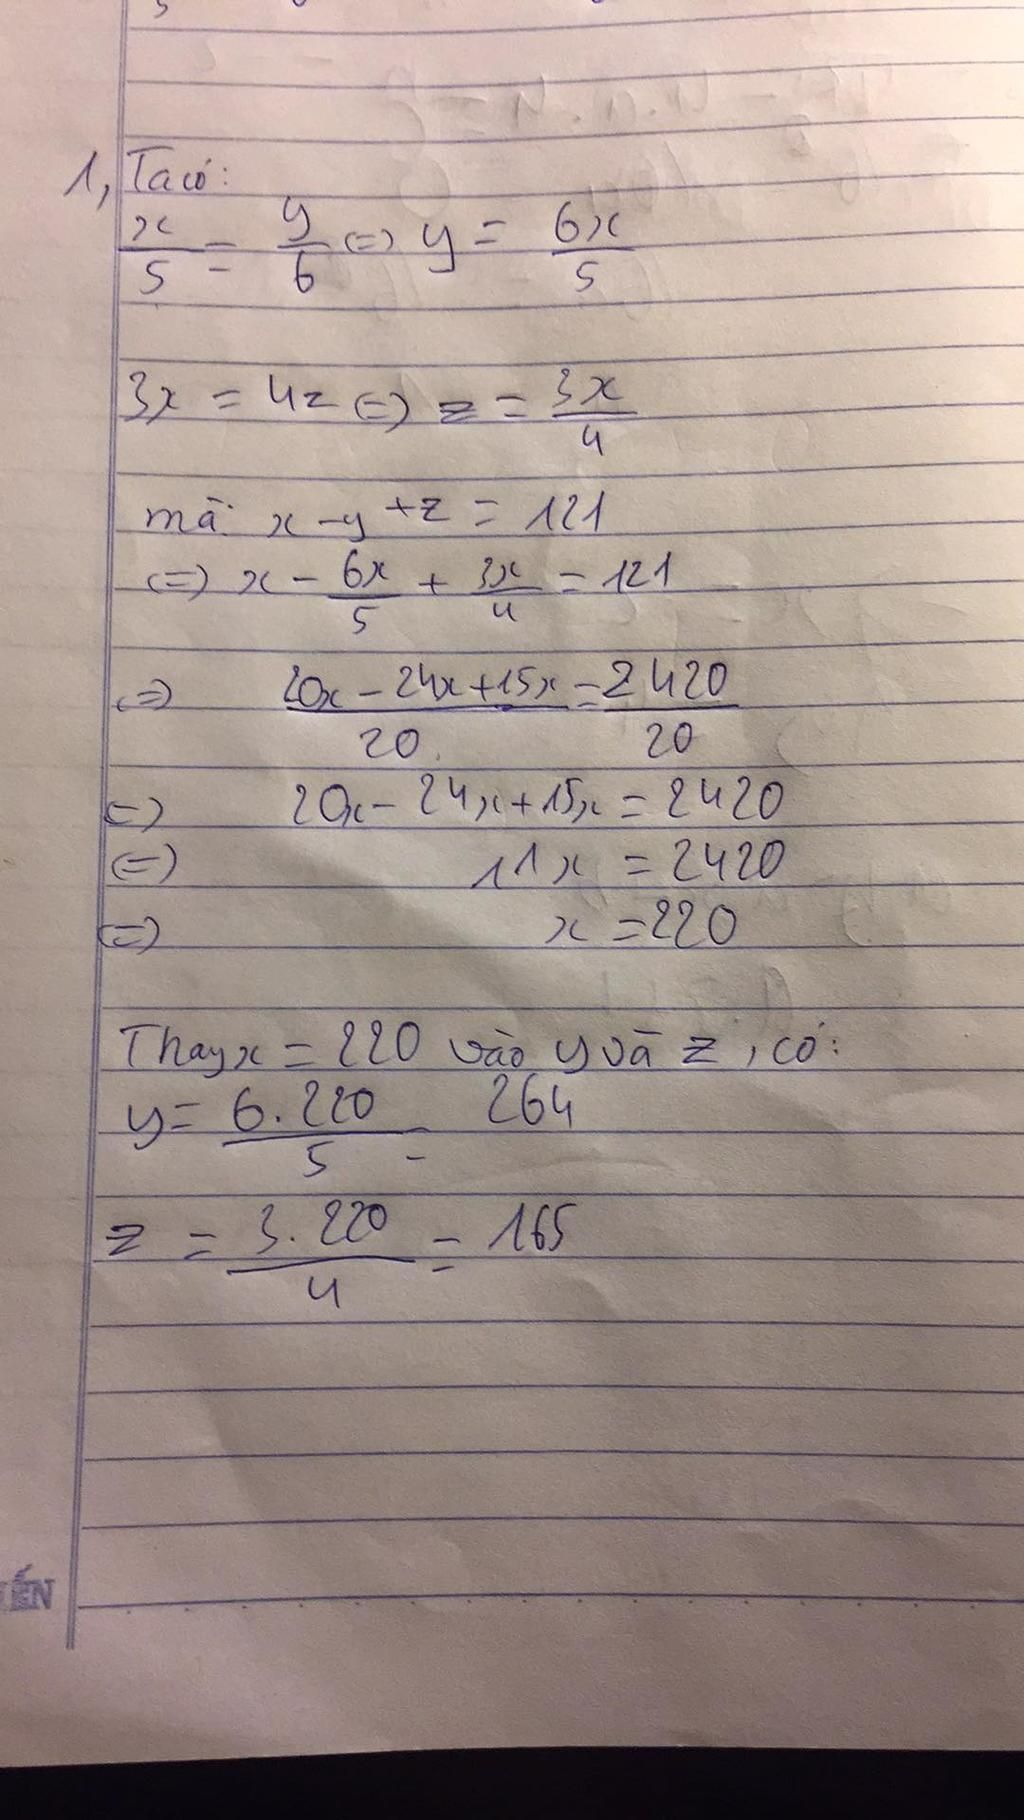 1, Ta có:
x/5 = y/6 <=> y = 6x/5
3x = 4z <=> z = 3x/4
mà: x - y + z = 121
<=> x - 6x/5 + 3x/4 = 121
<=> (20x - 24x + 15x)/20 = 2420/20
<=> 20x - 24x + 15x = 2420
<=> 11x = 2420
<=> x = 220
Thay x = 220 vào y và z, có:
y = 6.220/5 = 264
z = 3.220/4 = 165
ẾN